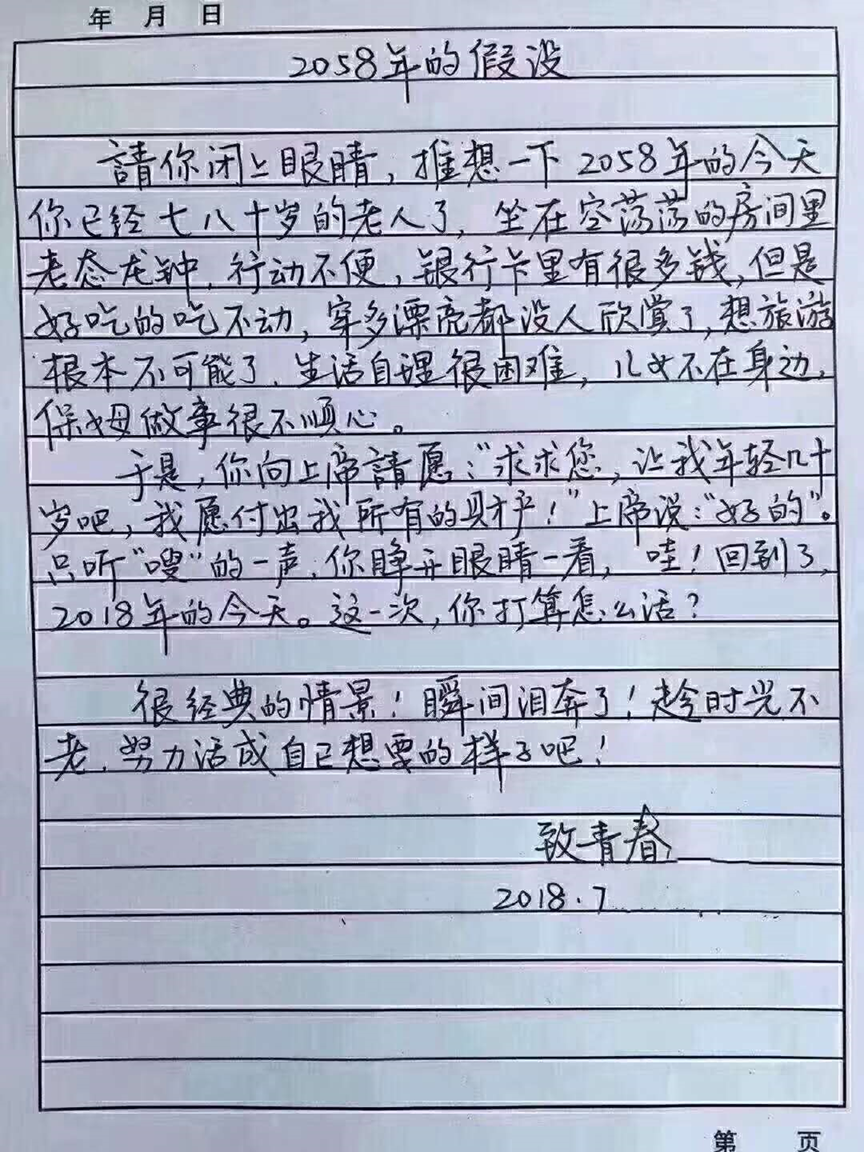 年 月 日
2058年的假设
請你闭上眼睛,推想一下2058年的今天
你已经七八十岁的老人了,坐在空荡荡的房间里
老态龙钟,行动不便,银行卡里有很多钱,但是
好吃的吃不动,穿多漂亮都没人欣赏了,想旅游
根本不可能了,生活自理很困难,儿女不在身边,
保姆做事很不顺心。
于是,你向上帝請愿:“求求您,让我年轻几十
岁吧,我愿付出我所有的财产!”上帝说:“好的”。
只听“嗖”的一声,你睁开眼睛一看,哇!回到了,
2018年的今天。这一次,你打算怎么活?
很经典的情景!瞬间泪奔了!趁时光不
老,努力活成自己想要的样子吧!
致青春
2018.7
第 页